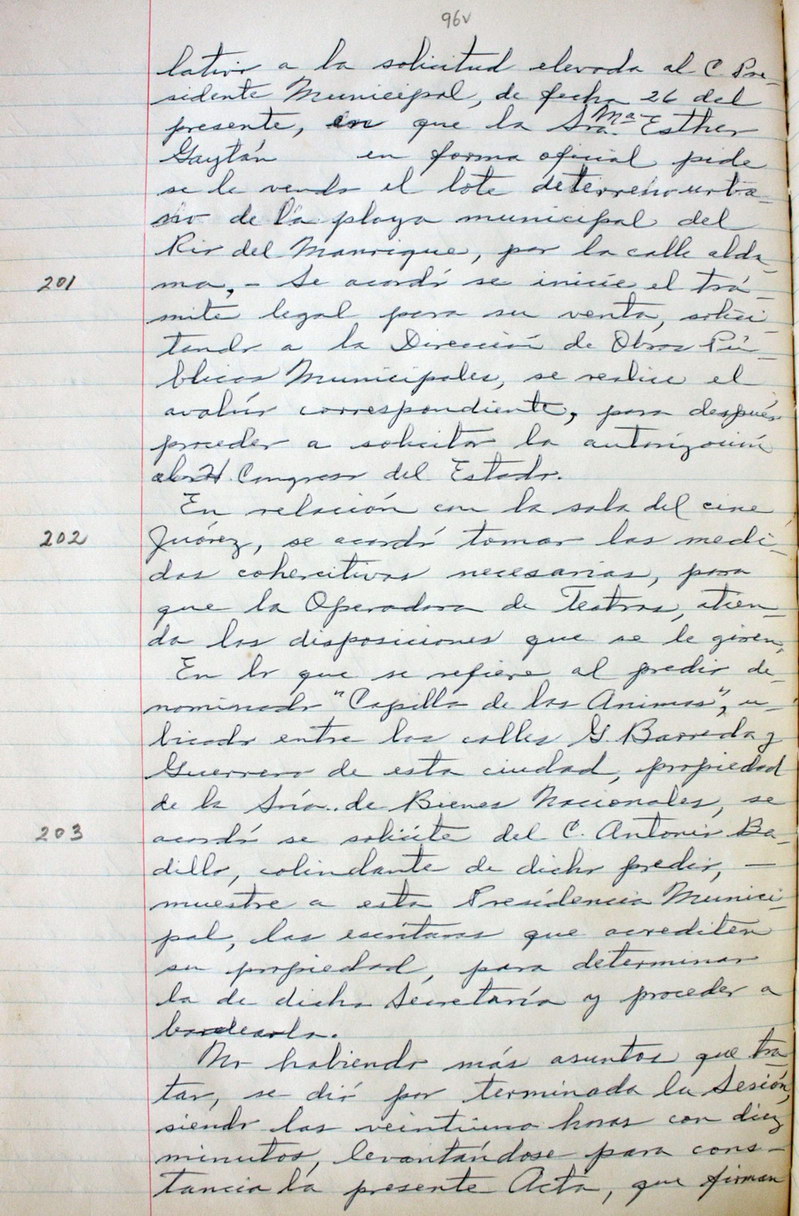 96v
lativo a la solicitud elevada al C. Pre-
sidente Municipal, de fecha 26 del
presente, en que la Sra. Ma. Esther
Gaytán en forma oficial pide
se le venda el lote de terreno urba-
no de la playa municipal del
Rio del Manrique, por la calle alda-
201 ma, - Se acordó se inicie el trá-
mite legal para su venta, solici-
tando a la Dirección de Obras Pú-
blicas Municipales, se realice el
avalúo correspondiente, para después
proceder a solicitar la autorización
al H. Congreso del Estado.
En relación con la sala del cine
202 Juárez, se acordó tomar las medi-
das cohercitivas necesarias, para
que la Operadora de Teatros, atien-
da las disposiciones que se le giren,
En lo que se refiere al predio de-
nominado "Capilla de las Animas", u-
bicado entre las calles G. Barreda y
Guerrero de esta ciudad, propiedad
de la Sría. de Bienes Nacionales, se
203 acordó se solicite del C. Antonio Ba-
dillo, colindante de dicho predio, -
muestre a esta Presidencia Munici-
pal, las escrituras que acrediten
su propiedad, para determinar
la de dicha Secretaría y proceder a
bardearla.
No habiendo más asuntos que tra-
tar, se dió por terminada la Sesión,
siendo las veintiuna horas con diez
minutos, levantándose para cons-
tancia la presente Acta, que firman